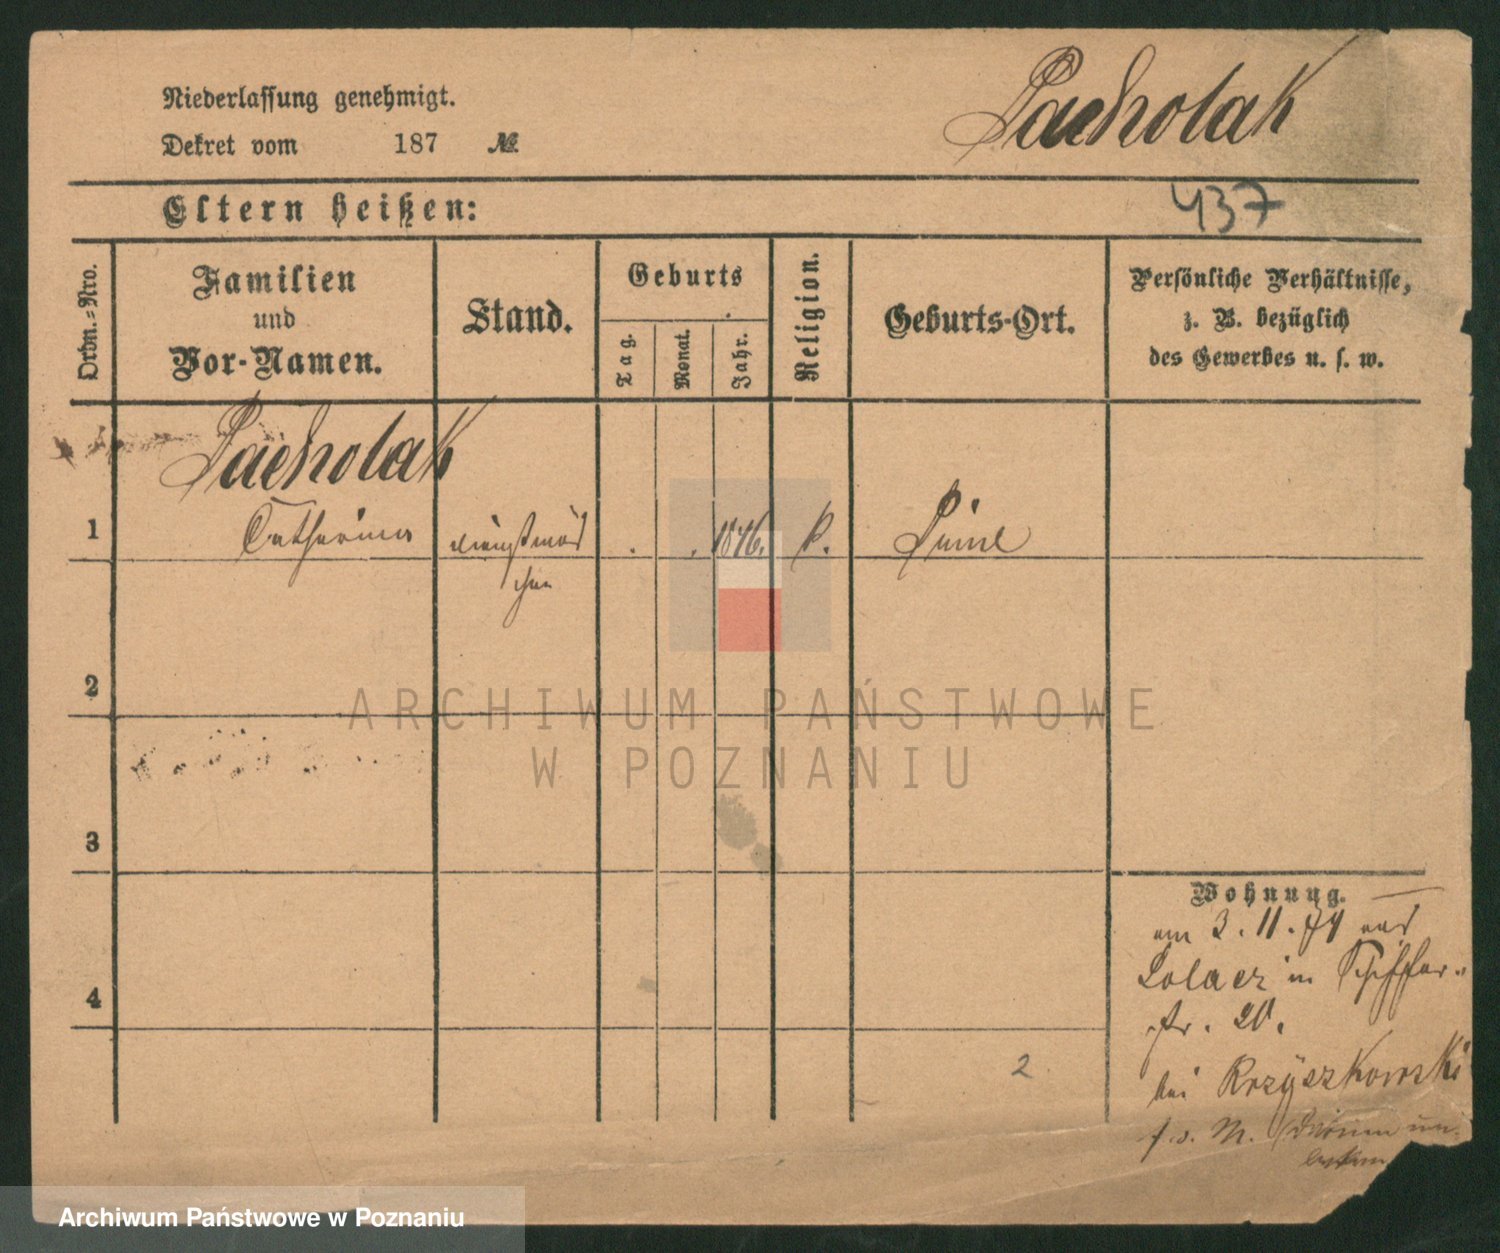 Pacholak
Niederlassung genehmigt.
Dekret vom 187 №
Eltern heißen:
437
Ordn.=Nro.
Familien
und
Vor-Namen.
Stand.
Geburts
Tag.
Monat.
Jahr.
Religion.
Geburts-Ort.
Persönliche Verhältnisse,
z. B. bezüglich
des Gewerbes u. s. w.
Pacholak
1 Catharina Dienstmäd
chen
1846.
Pinne
2
3
4
Wohnung.
am 3. 11. 74 aus
Solacz in Schiffer-
str. 20.
bei Krzyszkowski
2
ARCHIWUM PAŃSTWOWE
W POZNANIU
Archiwum Państwowe w Poznaniu